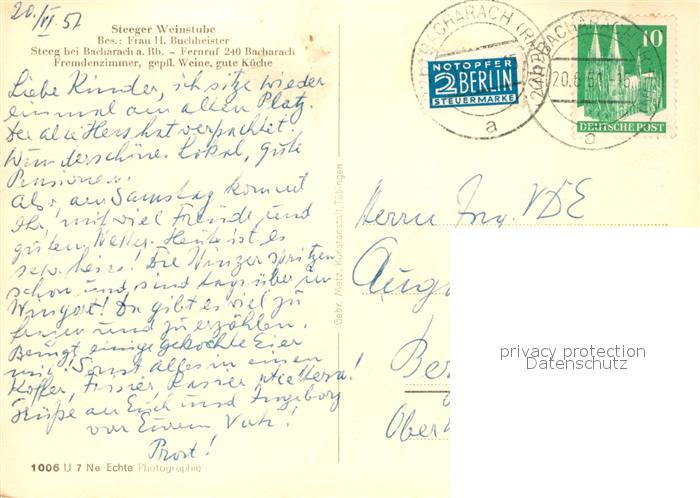 20./VI. 51
Steeger Weinstube
Bes.: Frau H. Buchheister
Steeg bei Bacharach a. Rh. - Fernruf 240 Bacharach
Fremdenzimmer, gepfl. Weine, gute Küche
Liebe Kinder, ich sitze wieder
einmal am alten Platz.
Der alte Herr hat verpachtet.
Wunderschönes Lokal, gute
Pensionen.
Also am Samstag kommt
Ihr mit viel Freude und
gutem Wetter. Heute ist es
sehr heiss! Die Winzer spritzen
schon und sind tagsüber im
Wingert! Da gibt es viel zu
und zu erzählen.
Bringt einige gekochte Eier
mit! Sonst alles in einen
Koffer,
Grüße an Euch und Ingeborg
von Eurem Vati!
Prost!
1006 U 7 Ne Echte Photographie
Gebr. Metz, Kunstanstalt, Tübingen
BACHARACH (RHEIN)
a
NOTOPFER
2 BERLIN
STEUERMARKE
(22b) BACHARACH
20.6.51.-15
a
10
DEUTSCHE POST
Herrn Ing. VDE
Aug
Ber
Ober
privacy protection
Datenschutz